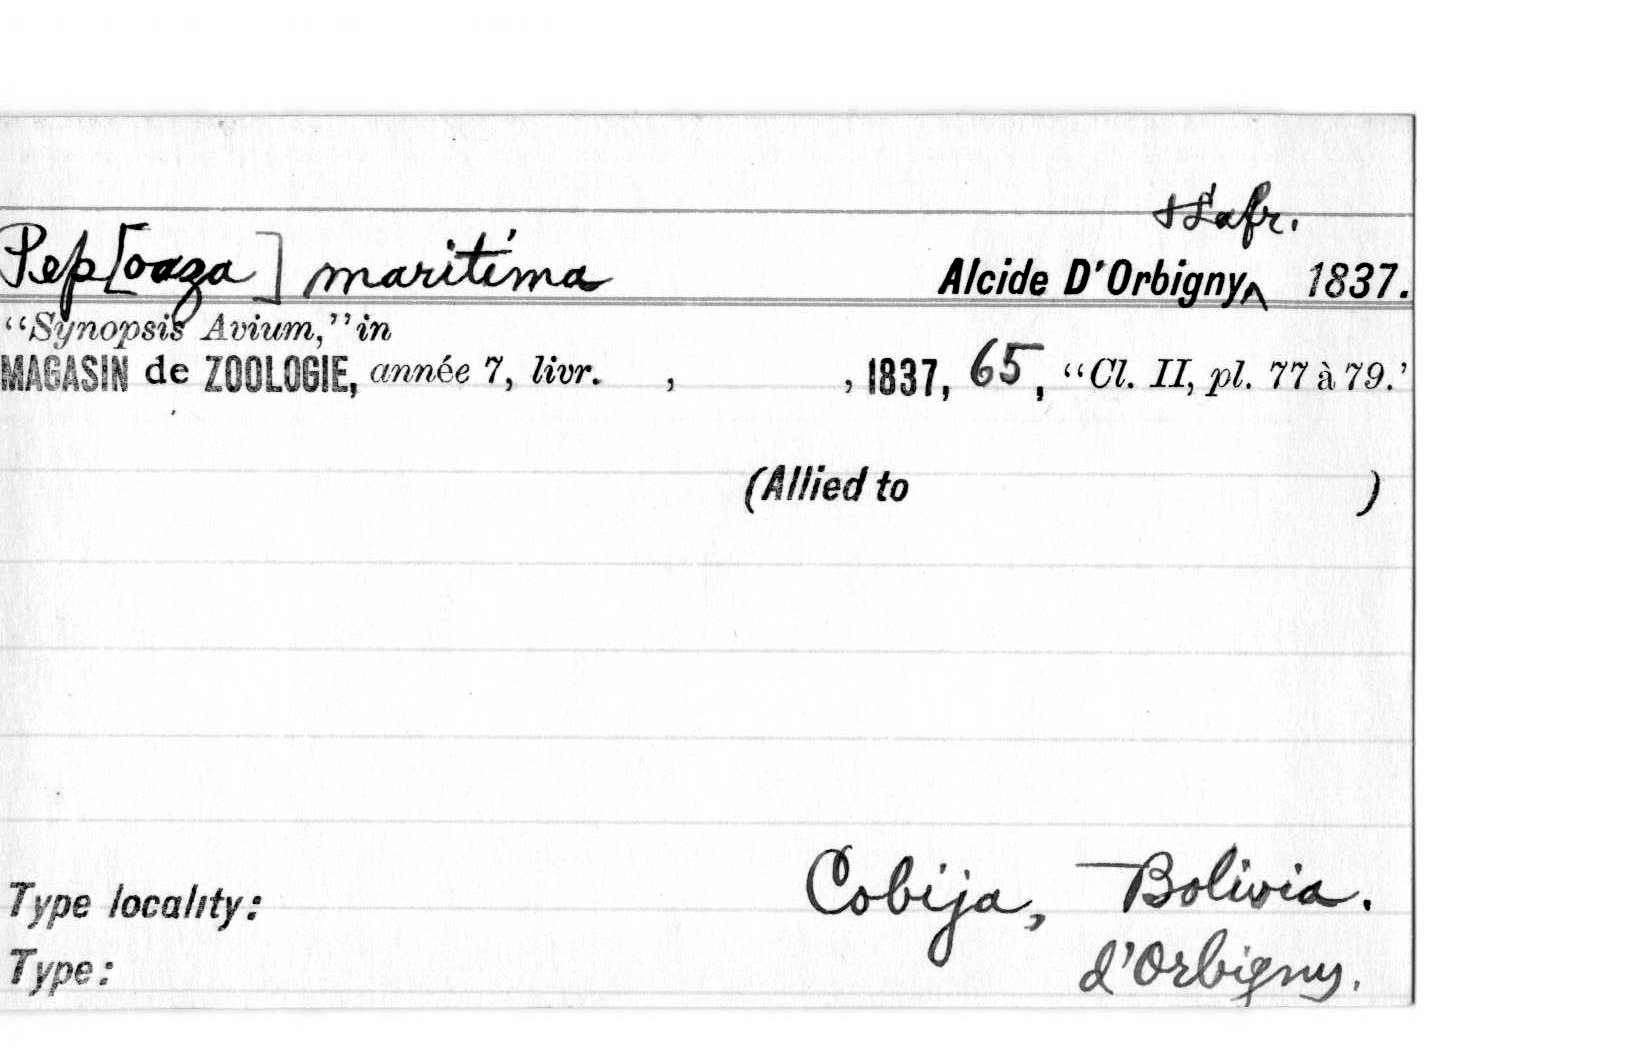 & Lafr.
Pep[oaza] maritima Alcide D'Orbigny^ 1837.
“Synopsis Avium,” in
MAGASIN de ZOOLOGIE, année 7, livr. , , 1837, 65, “Cl. II, pl. 77 à 79.’
(Allied to )
Type locality: Cobija, Bolivia.
Type: d'Orbigny.